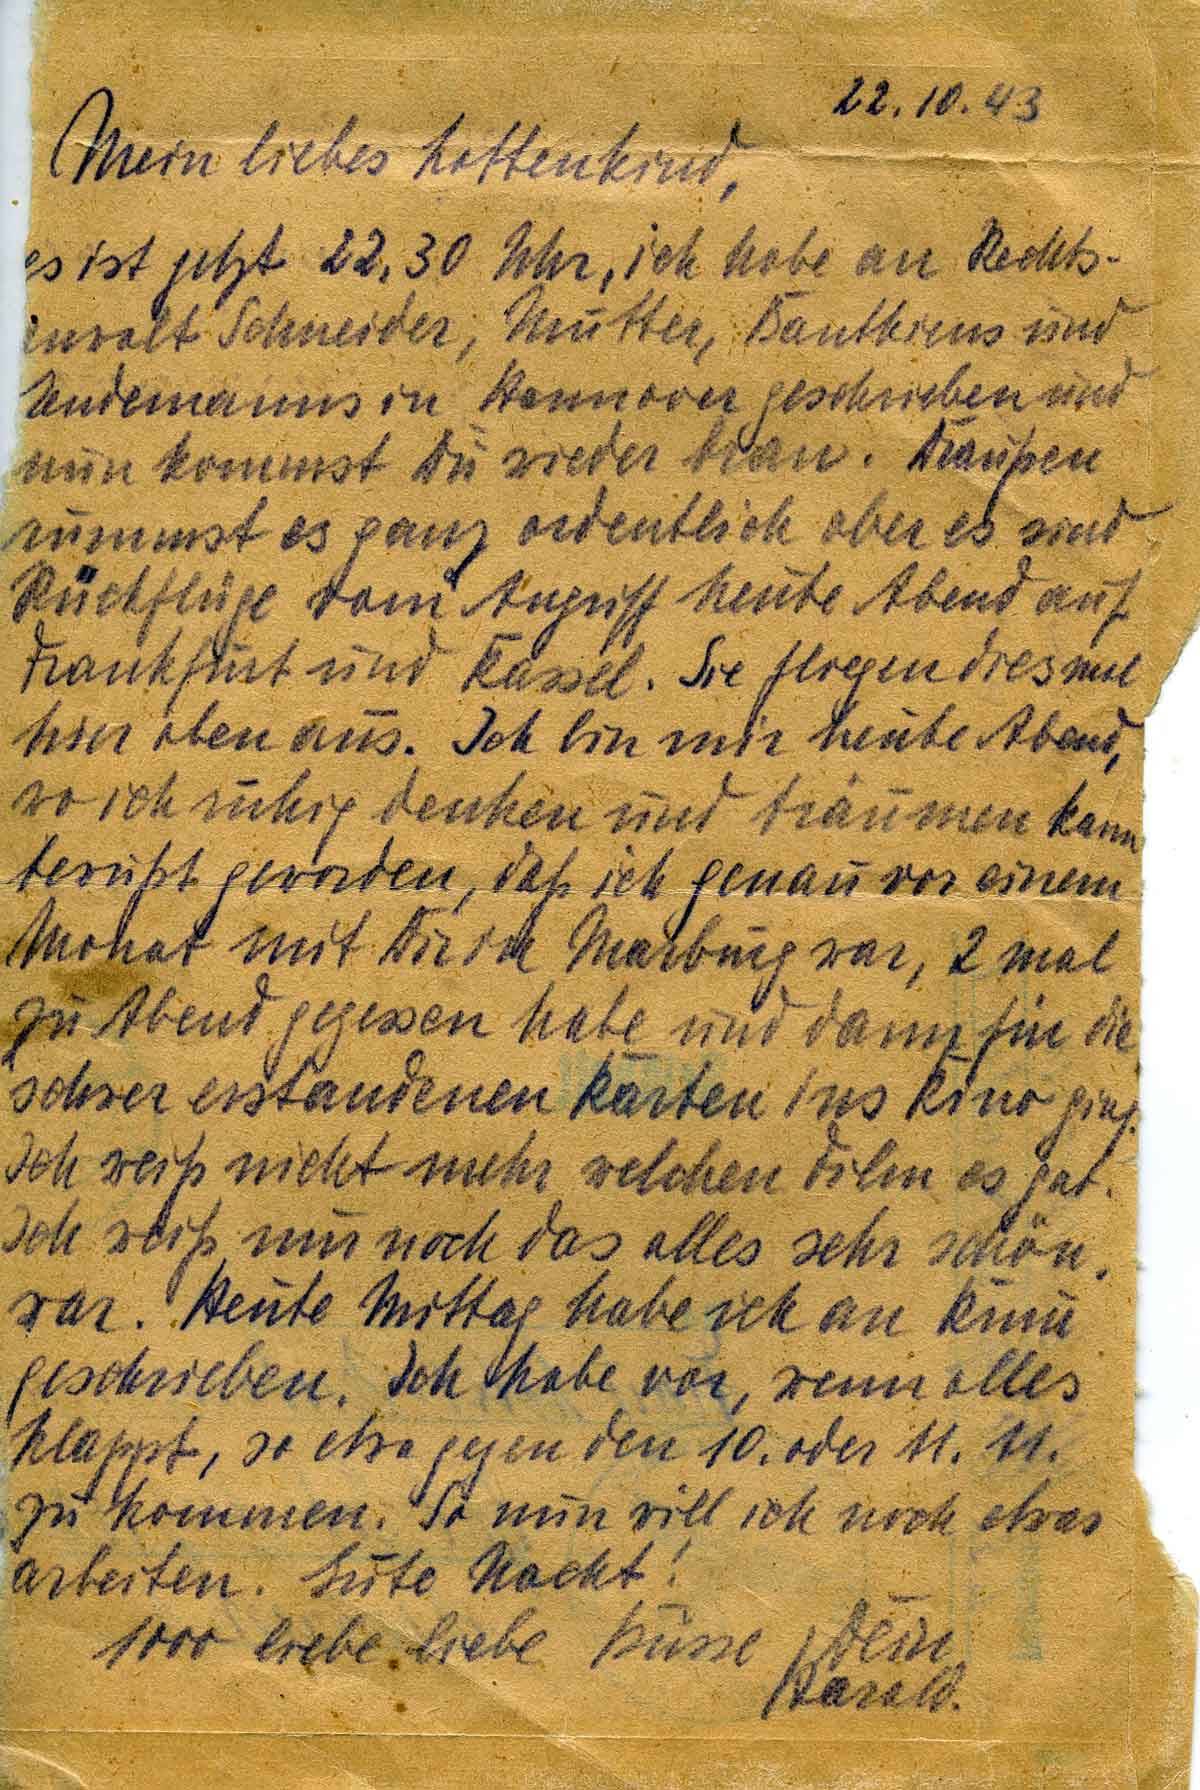 22.10.43
Mein liebes Lottenkind,
es ist jetzt 22.30 Uhr, ich habe an Rechts-
anwalt Schneider, Mutter, und
in Hannover geschrieben und
nun kommst Du wieder dran. Draußen
rummst es ganz ordentlich aber es sind
Rückflüge vom Angriff heute Abend auf
Frankfurt und Kassel. Sie fliegen diesmal
hier oben aus. Ich bin mir heute Abend,
wo ich ruhig denken und träumen kann
bewußt geworden, daß ich genau vor einem
Monat mit Dir in Marburg war, 2 mal
zu Abend gegessen habe und dann für die
schwer erstandenen Karten ins Kino ging.
Ich weiß nicht mehr welchen Film es gab.
Ich weiß nur noch das alles sehr schön
war. Heute Mittag habe ich an
geschrieben. Ich habe vor, wenn alles
klappt, so etwa gegen den 10. oder 11. 11.
zu kommen. So nun will ich noch etwas
arbeiten. Gute Nacht!
1000 liebe liebe Küsse Dein
Harald.